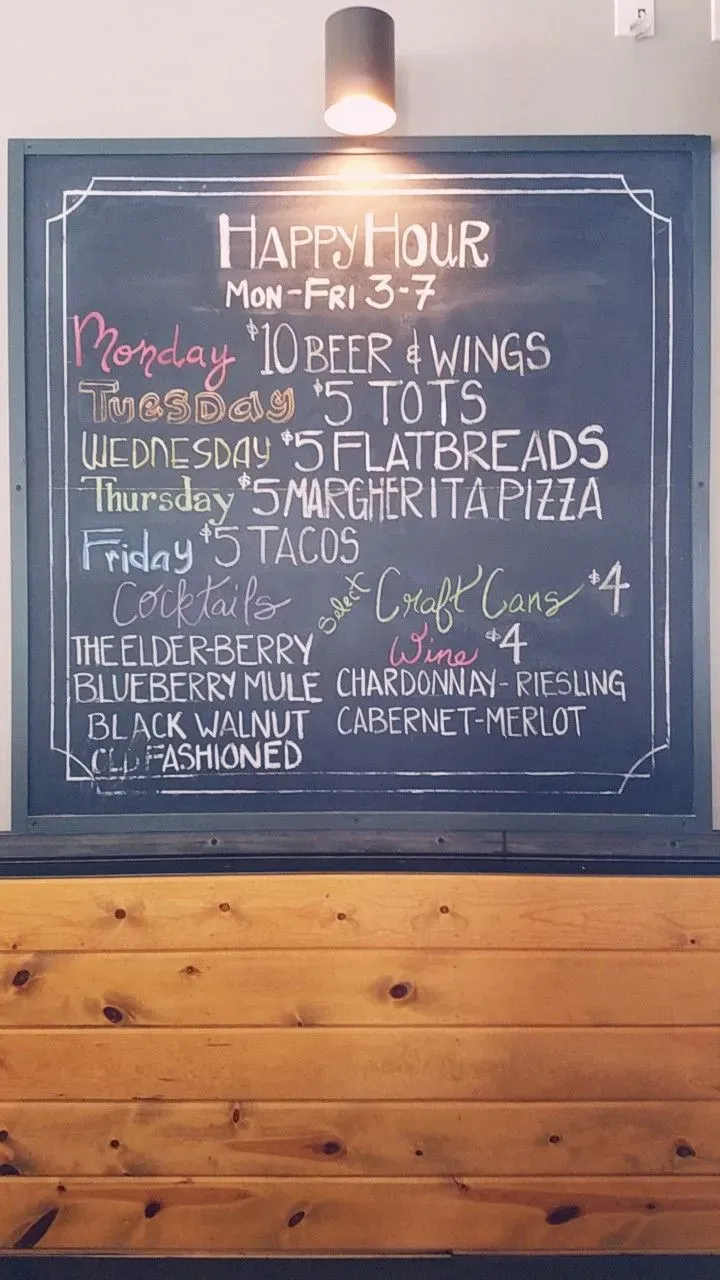 HAPPY HOUR
MON-FRI 3-7
Monday $10 BEER & WINGS
TUESDAY $5 TOTS
WEDNESDAY $5 FLATBREADS
Thursday $5 MARGHERITA PIZZA
Friday $5 TACOS
Cocktails
THE ELDER-BERRY
BLUEBERRY MULE
BLACK WALNUT
OLD FASHIONED
Select Craft Cans $4
Wine $4
CHARDONNAY-RIESLING
CABERNET-MERLOT